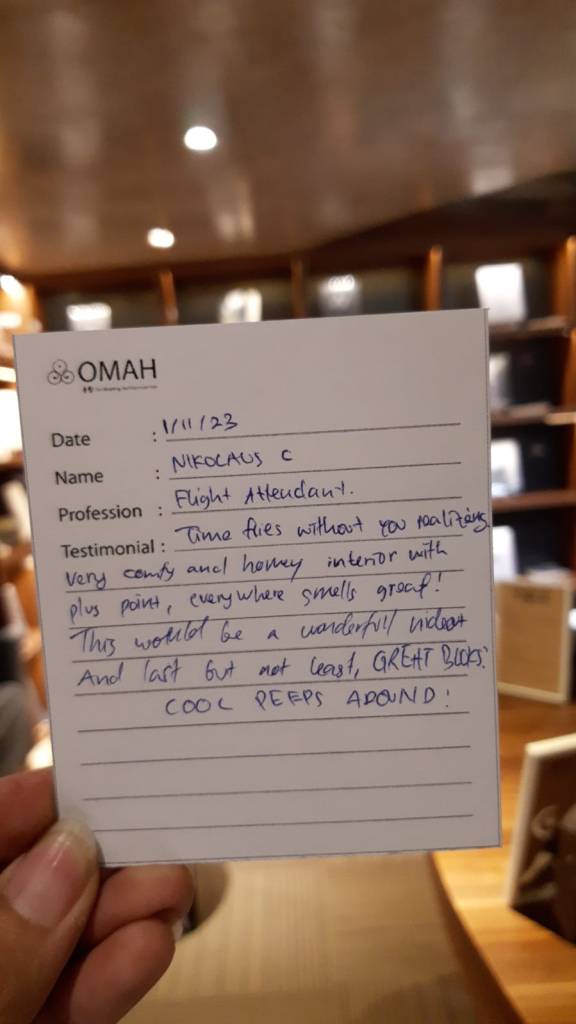 OMAH
Date : 1/11/23
Name : NIKOLAUS C
Profession : Flight Attendant.
Testimonial : Time flies without you realizing.
Very comfy and homey interior with
plus point, everywhere smells great!
This would be a wonderfull hideout
And last but not least, GREAT BOOKS!
COOL PEEPS AROUND!